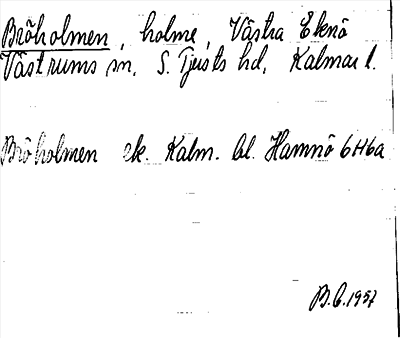 Bröholmen, holme, Västra Eknö
Västrums sn, S. Tjusts hd, Kalmar l.
Bröholmen ek. Kalm. bl. Hamnö 6H6a
B.G. 1957